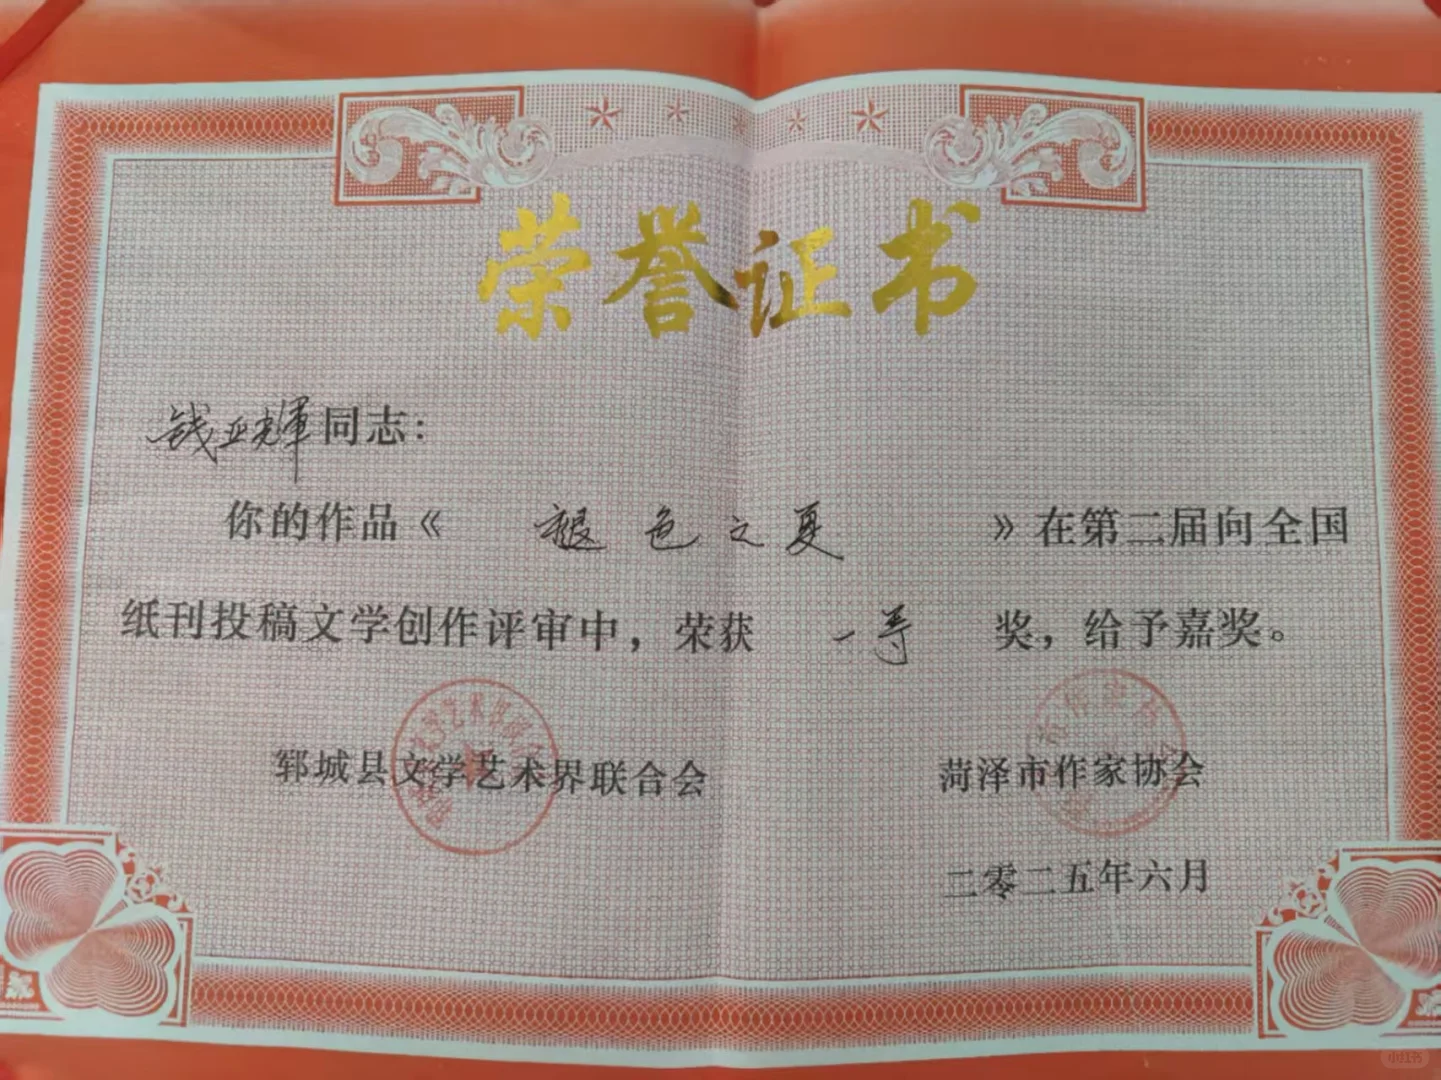 荣誉证书
钱亚辉同志：
你的作品《褪色之夏》在第二届向全国
纸刊投稿文学创作评审中，荣获一等奖，给予嘉奖。
郓城县文学艺术界联合会
菏泽市作家协会
二零二五年六月
小红书